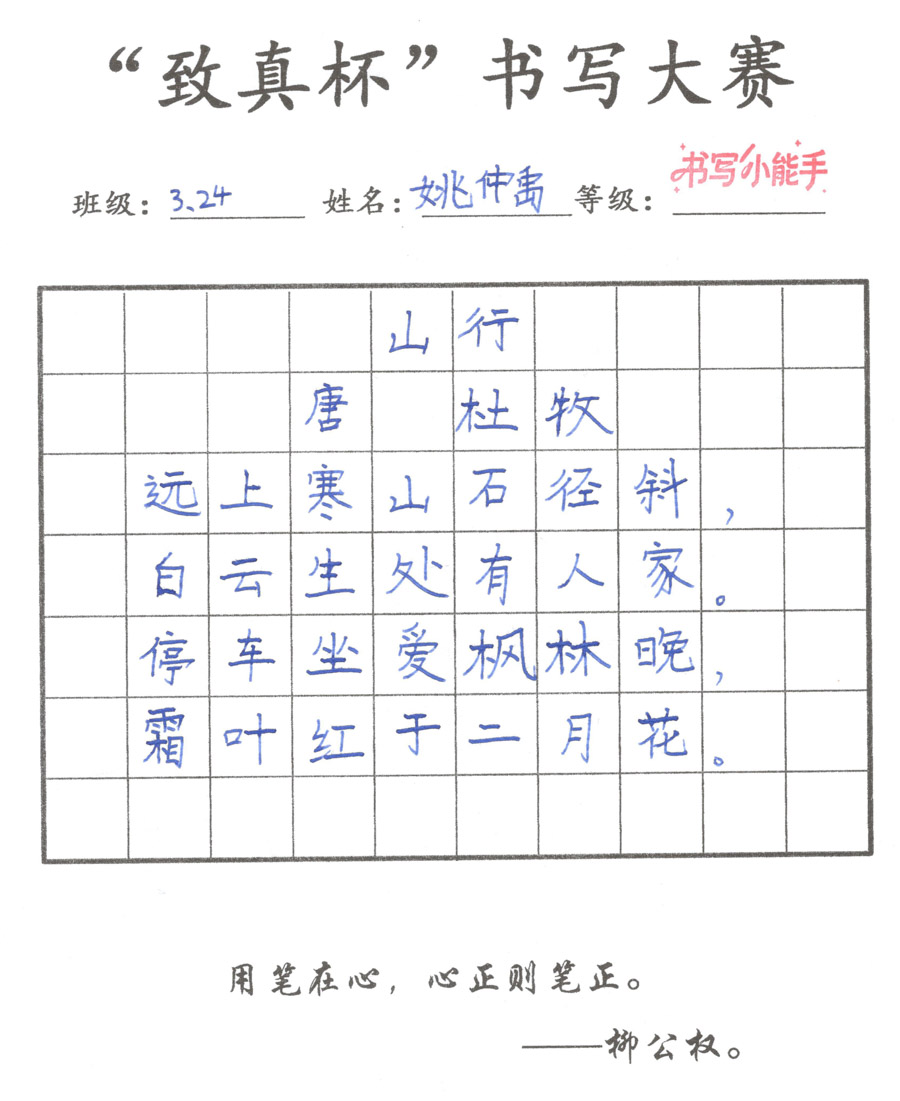 “致真杯”书写大赛
班级：3.24 姓名：姚仲禹 等级：书写小能手
山行
唐 杜牧
远上寒山石径斜，
白云生处有人家。
停车坐爱枫林晚，
霜叶红于二月花。
用笔在心，心正则笔正。
——柳公权。